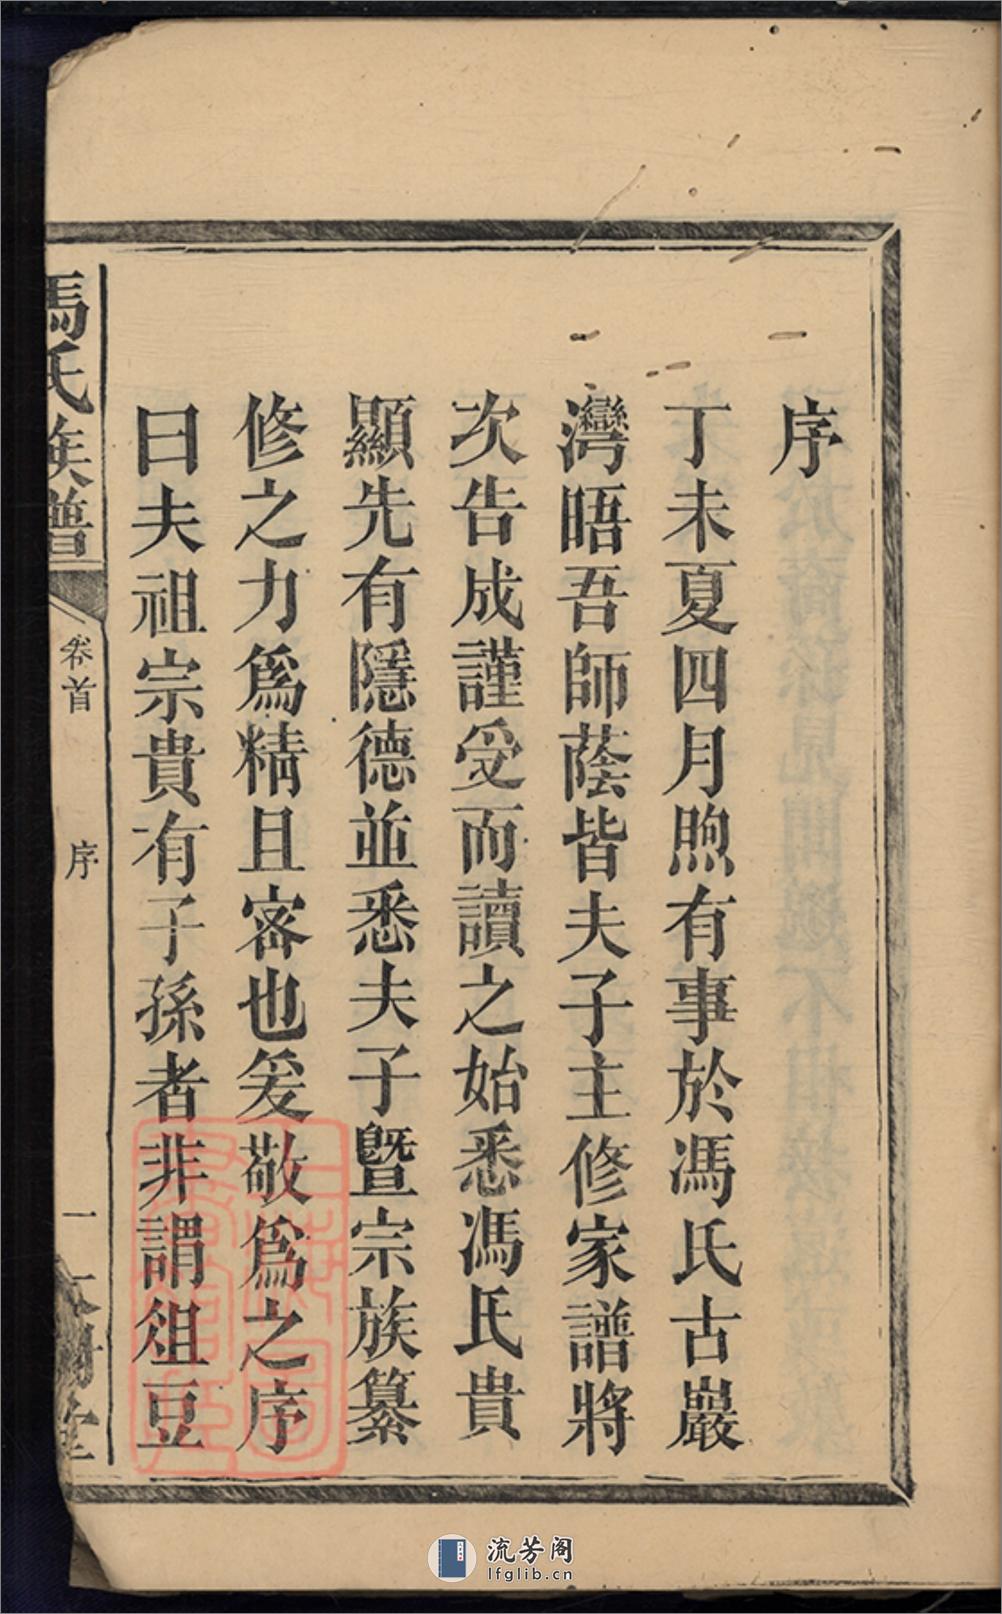 序
丁未夏四月煦有事於馮氏古巖
灣晤吾師蔭皆夫子主修家譜將
次告成謹受而讀之始悉馮氏貴
顯先有隱德並悉夫子暨宗族纂
修之力為精且密也爰敬為之序
曰夫祖宗貴有子孫者非謂俎豆
馮氏族譜
卷首
序
一
流芳阁
lfglib.cn